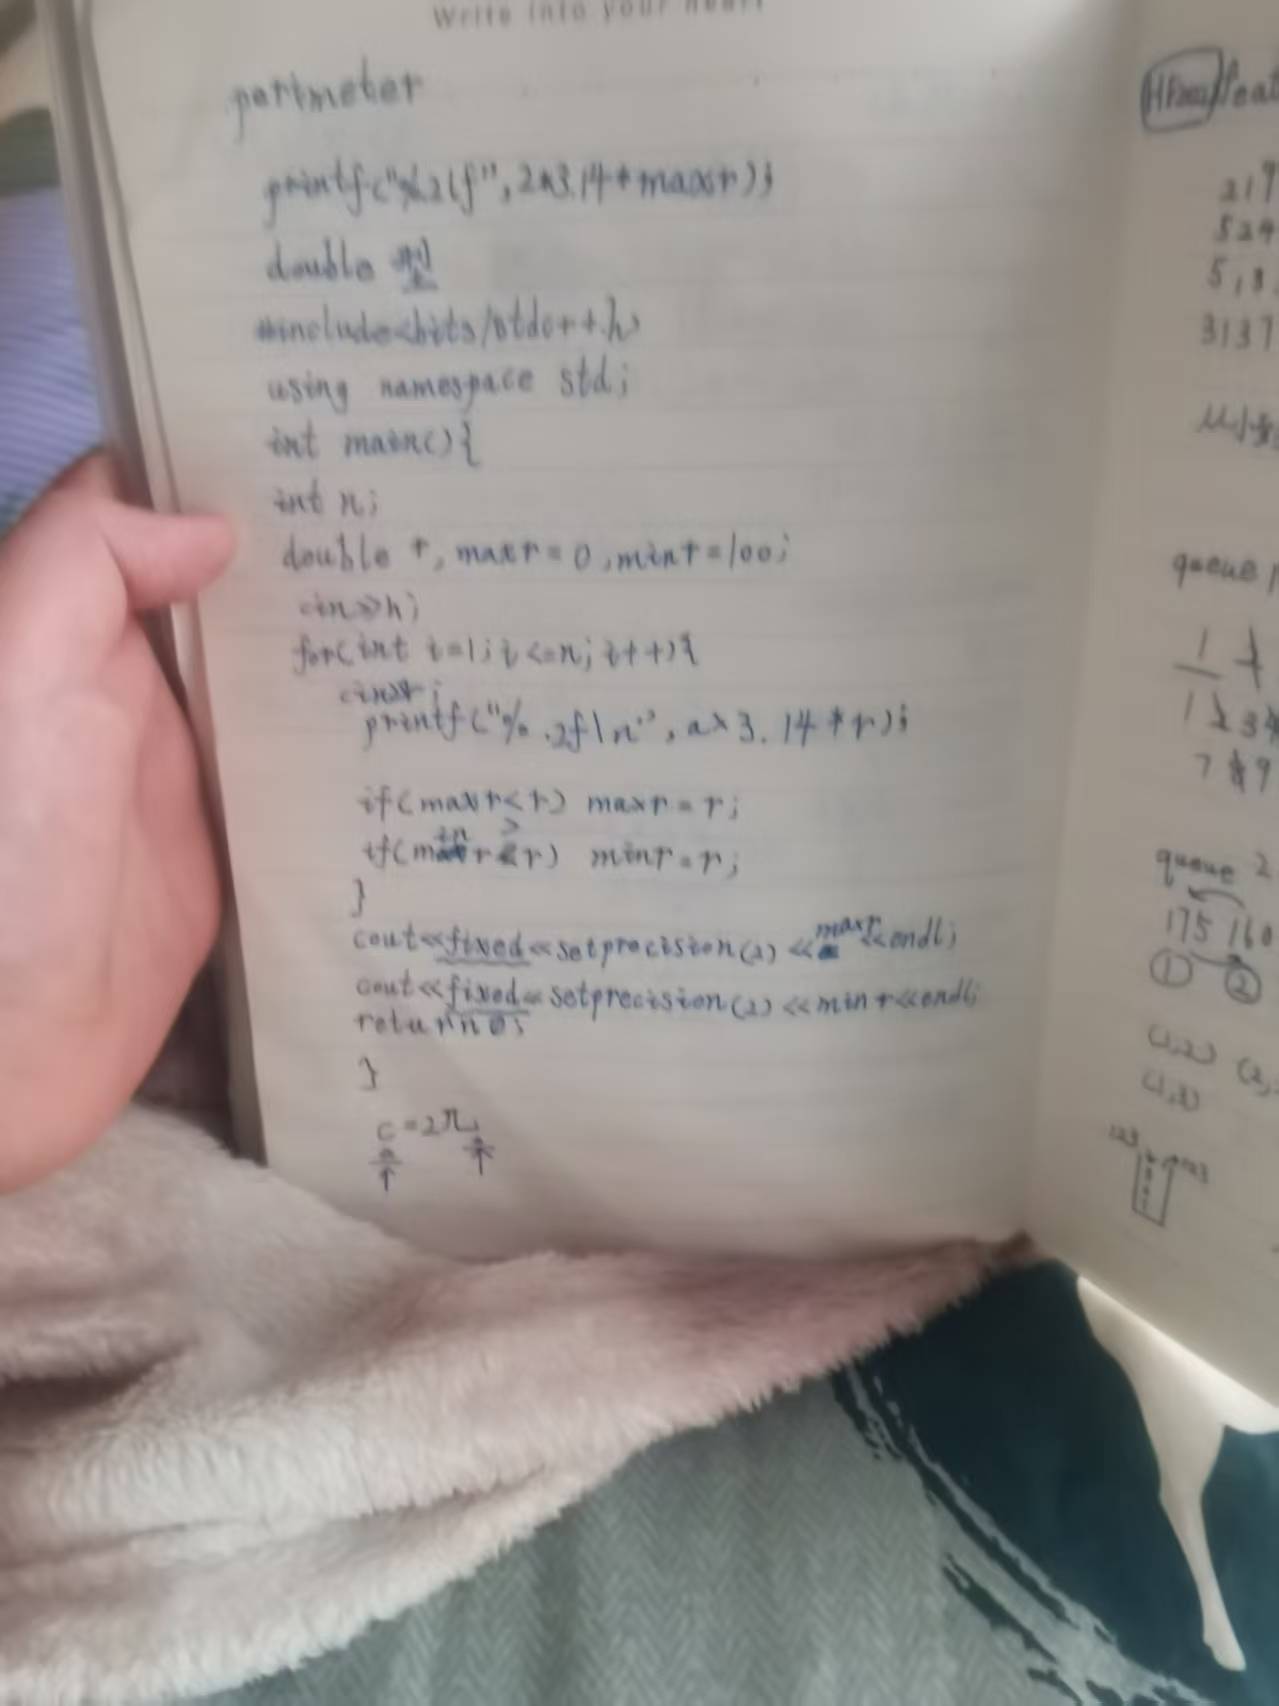 Write into your heart
perimeter
printf("%.2lf", 2*3.14*maxr);
double 型
#include<bits/stdc++.h>
using namespace std;
int main(){
int n;
double r, maxr=0, minr=100;
cin>>n;
for(int i=1; i<=n; i++){
cin>>r;
printf("%.2f\n", 2*3.14*r);
if(maxr<r) maxr=r;
if(minr>r) minr=r;
}
cout<<fixed<<setprecision(2)<<maxr<<endl;
cout<<fixed<<setprecision(2)<<minr<<endl;
return 0;
}
C=2π
217
524
5,8
3137
从小到
queue
1
1 2 3 4
7 8 9
queue 2
175 160
① ②
(1,2) (2,
(1,3)
123 123